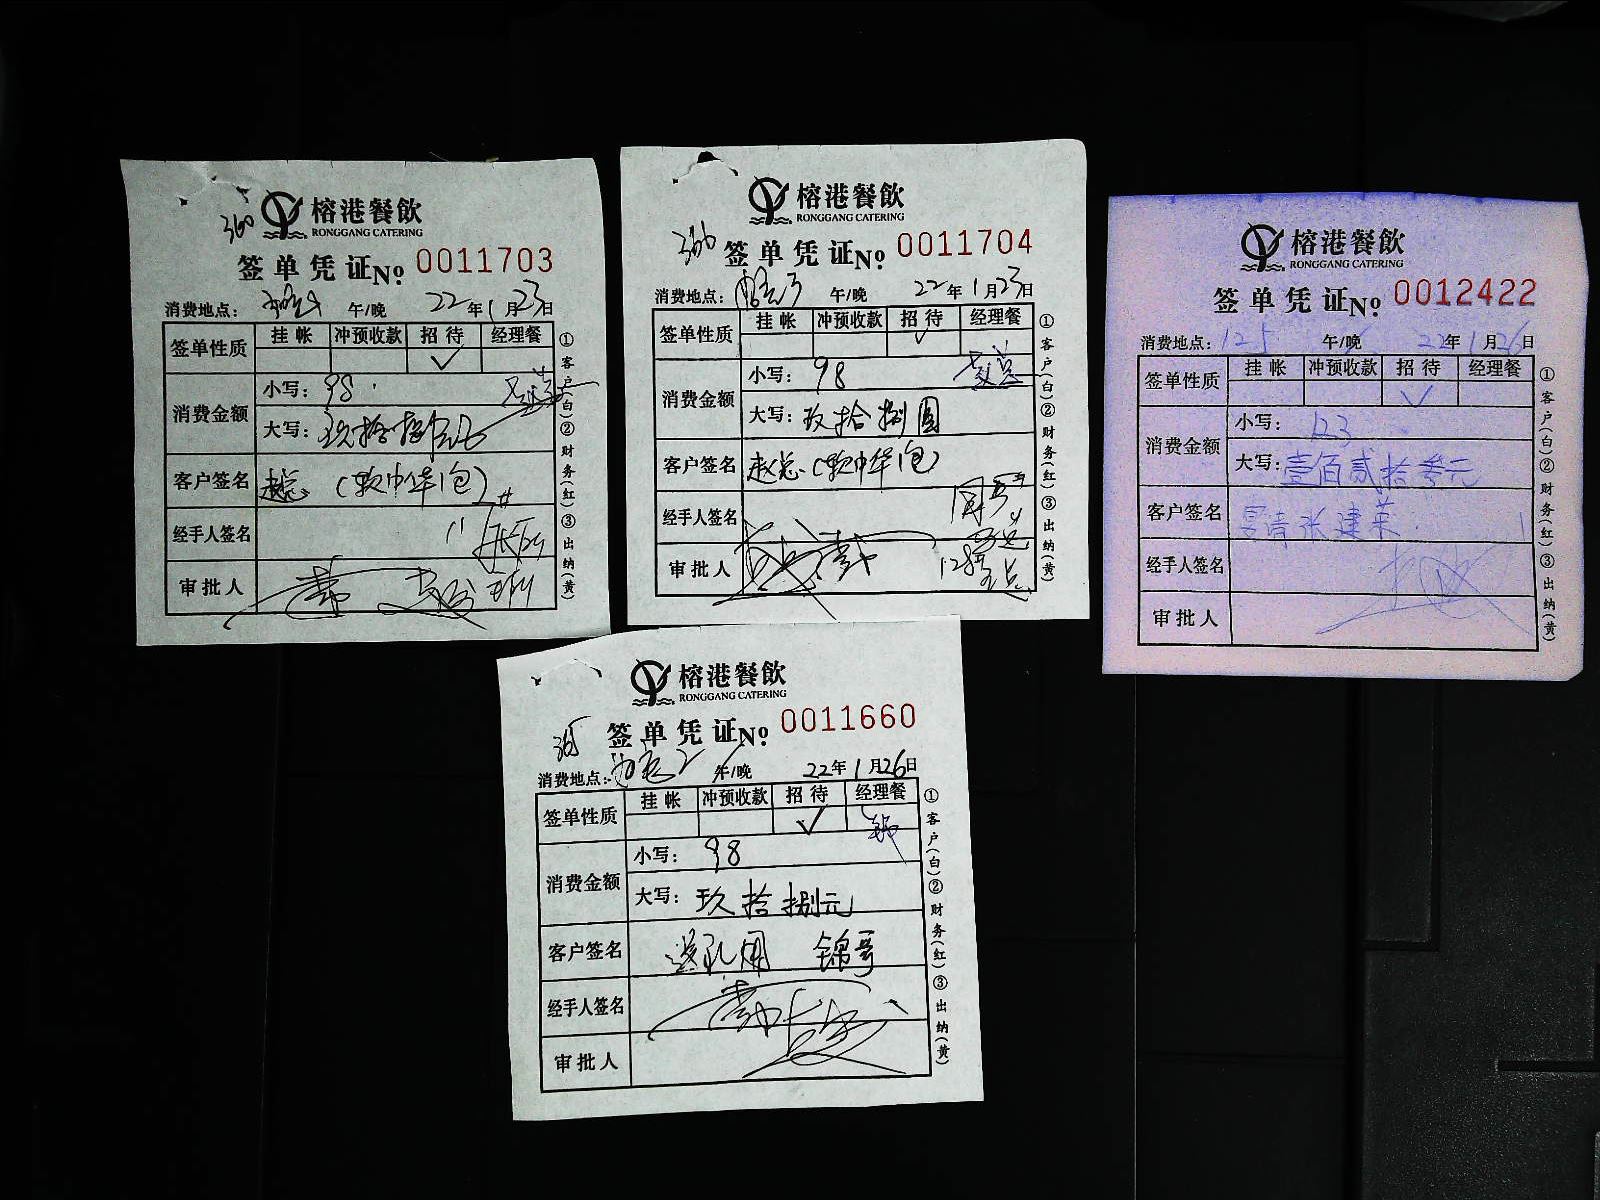 榕港餐飲
RONGGANG CATERING
360
签单凭证№ 0011703
消费地点: 午/晚 22年1月23日
签单性质 挂帐 冲预收款 招待 经理餐
✓
消费金额
小写: 98
大写: 玖拾捌元
客户签名 赵总 (软中华1包)
经手人签名
审批人
①客户(白)②财务(红)③出纳(黄)
榕港餐飲
RONGGANG CATERING
366
签单凭证№ 0011704
消费地点: 午/晚 22年1月23日
签单性质 挂帐 冲预收款 招待 经理餐
✓
消费金额
小写: 98
大写: 玖拾捌圆
客户签名 赵总 (软中华1包)
经手人签名
审批人
①客户(白)②财务(红)③出纳(黄)
榕港餐飲
RONGGANG CATERING
签单凭证№ 0012422
消费地点: 125 午/晚 22年1月26日
签单性质 挂帐 冲预收款 招待 经理餐
✓
消费金额
小写: 123
大写: 壹佰贰拾叁元
客户签名 宴请张建英
经手人签名
审批人
①客户(白)②财务(红)③出纳(黄)
榕港餐飲
RONGGANG CATERING
365
签单凭证№ 0011660
消费地点: 午/晚 22年1月26日
签单性质 挂帐 冲预收款 招待 经理餐
✓
消费金额
小写: 98
大写: 玖拾捌元
客户签名 送礼用 锦哥
经手人签名
审批人
①客户(白)②财务(红)③出纳(黄)